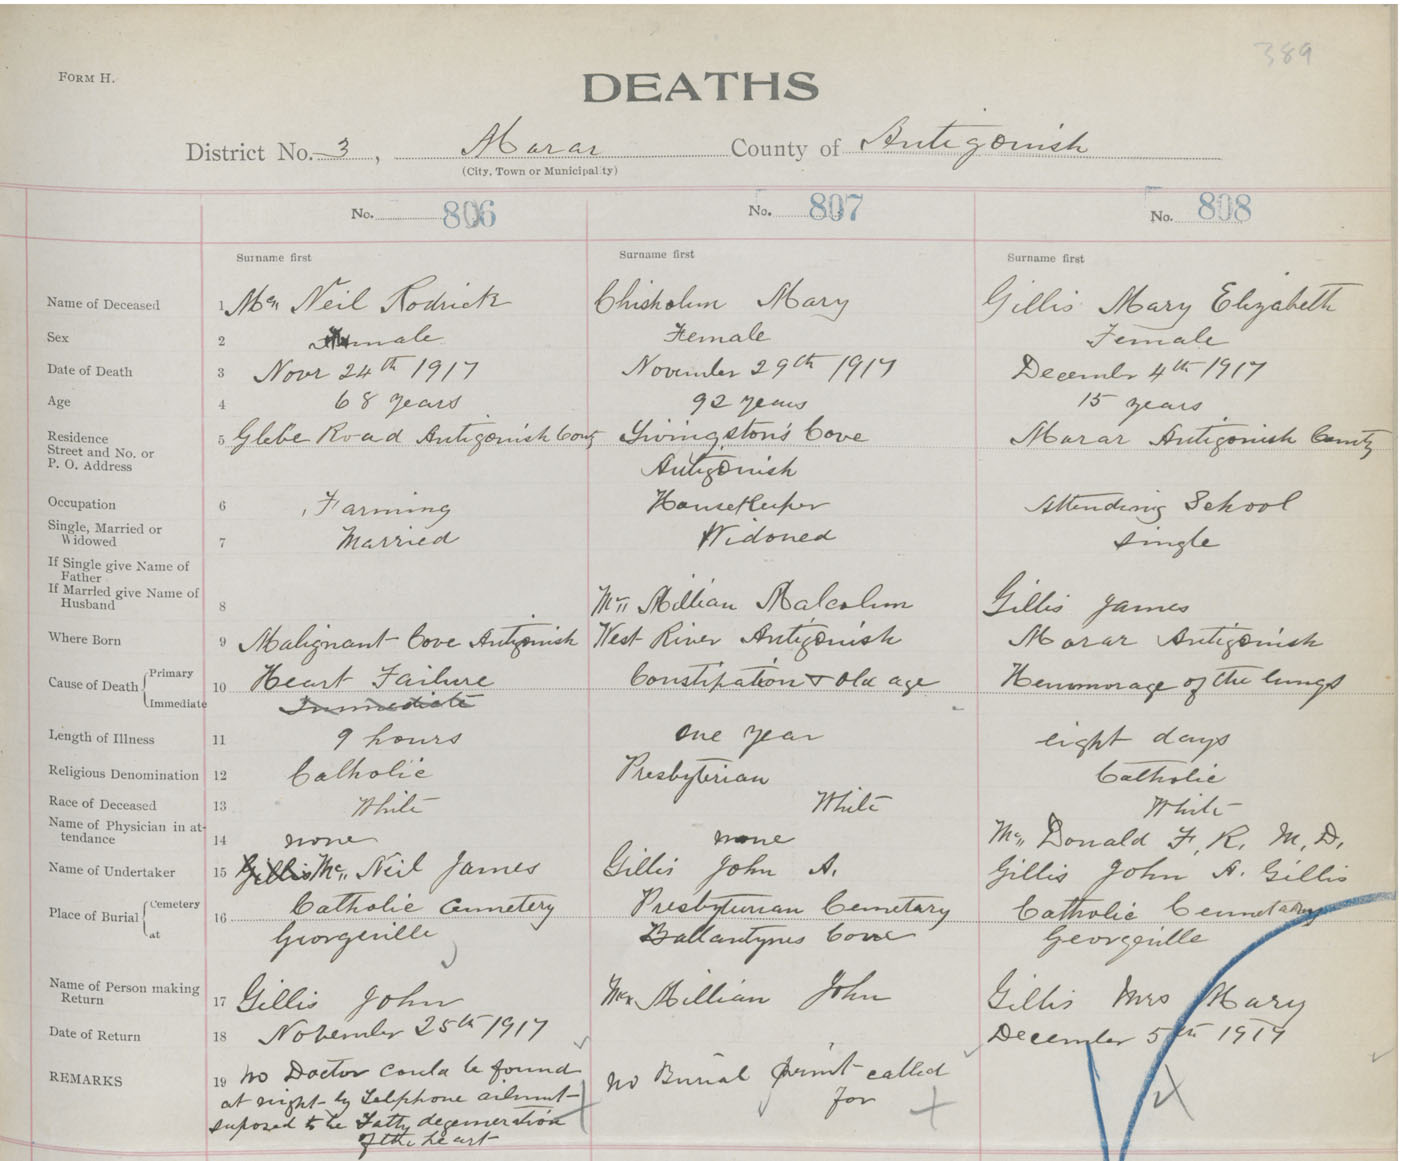 389
FORM H.
DEATHS
District No. 3, Marar County of Antigonish
(City, Town or Municipality)
No. 806 No. 807 No. 808
Surname first Surname first Surname first
Name of Deceased 1 Mc Neil Rodrick Chisholm Mary Gillis Mary Elizabeth
Sex 2 male Female Female
Date of Death 3 Novr 24th 1917 November 29th 1917 December 4th 1917
Age 4 68 years 92 years 15 years
Residence
Street and No. or 5 Glebe Road Antigonish County Livingstons Cove Marar Antigonish County
P. O. Address Antigonish
Occupation 6 Farming HouseKeeper Attending School
Single, Married or
Widowed 7 Married Widowed single
If Single give Name of
Father
If Married give Name of
Husband 8 Mc Millian Malcolm Gillis James
Where Born 9 Malignant Cove Antigonish West River Antigonish Marar Antigonish
Cause of Death Primary 10 Heart Failure Constipation & old age Hemmorage of the lungs
Immediate Immediate
Length of Illness 11 9 hours one year eight days
Religious Denomination 12 Catholic Presbyterian Catholic
Race of Deceased 13 White White White
Name of Physician in at-
tendance 14 none none Mc Donald F. R. M. D.
Name of Undertaker 15 Gillis Mc Neil James Gillis John A. Gillis John A. Gillis
Place of Burial Cemetery 16 Catholic Cemetery Presbyterian Cemetary Catholic Cemetary
at Georgeville Ballantynes Cove Georgeville
Name of Person making
Return 17 Gillis John Mc Millian John Gillis Mrs Mary
Date of Return 18 November 25th 1917 December 5th 1917
REMARKS 19 no Doctor could be found no Burial permit called
at night by Telphone ailment for
suposed to be Fatty degeneration
of the heart